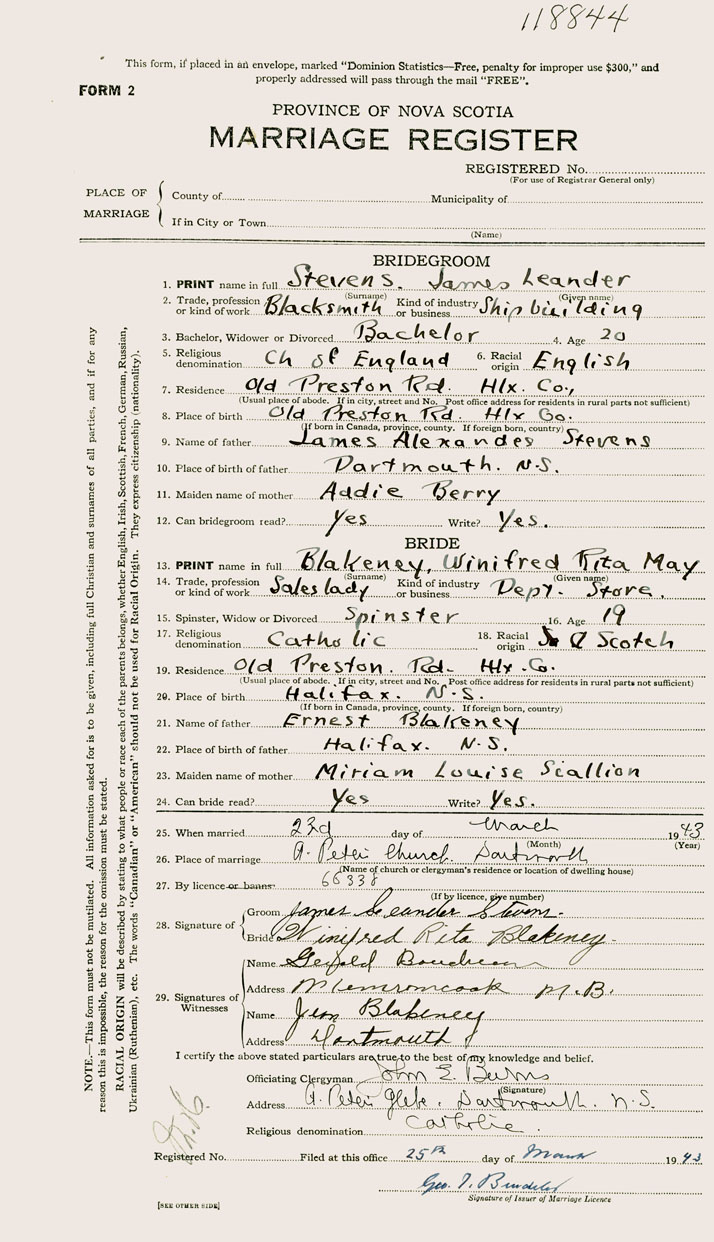 118844
This form, if placed in an envelope, marked "Dominion Statistics—Free, penalty for improper use $300," and
properly addressed will pass through the mail "FREE".
FORM 2
PROVINCE OF NOVA SCOTIA
MARRIAGE REGISTER
REGISTERED No.
(For use of Registrar General only)
PLACE OF MARRIAGE
County of Municipality of
If in City or Town
(Name)
BRIDEGROOM
1. PRINT name in full Stevens, James Leander
(Surname) (Given name)
2. Trade, profession or kind of work Blacksmith Kind of industry or business Ship building
3. Bachelor, Widower or Divorced Bachelor 4. Age 20
5. Religious denomination Ch of England 6. Racial origin English
7. Residence Old Preston Rd. Hlx. Co.,
(Usual place of abode. If in city, street and No. Post office address for residents in rural parts not sufficient)
8. Place of birth Old Preston Rd. Hlx Co.
(If born in Canada, province, county. If foreign born, country)
9. Name of father James Alexander Stevens
10. Place of birth of father Dartmouth. N.S.
11. Maiden name of mother Addie Berry
12. Can bridegroom read? Yes Write? Yes.
BRIDE
13. PRINT name in full Blakeney, Winifred Rita May
(Surname) (Given name)
14. Trade, profession or kind of work Saleslady Kind of industry or business Dept. Store.
15. Spinster, Widow or Divorced Spinster 16. Age 19
17. Religious denomination Catholic 18. Racial origin Scotch
19. Residence Old Preston. Rd. Hlx. Co.
(Usual place of abode. If in city, street and No. Post office address for residents in rural parts not sufficient)
20. Place of birth Halifax. N.S.
(If born in Canada, province, county. If foreign born, country)
21. Name of father Ernest Blakeney
22. Place of birth of father Halifax. N.S.
23. Maiden name of mother Miriam Louise Scallion
24. Can bride read? Yes Write? Yes.
25. When married 23rd day of March 1943
(Month) (Year)
26. Place of marriage St. Peter Church. Dartmouth
(Name of church or clergyman's residence or location of dwelling house)
27. By licence or banns 66338
(If by licence, give number)
28. Signature of
Groom James Leander Stevens.
Bride Winifred Rita Blakeney.
29. Signatures of Witnesses
Name Gerald Boudreau
Address Memramcook N.B.
Name Jean Blakeney
Address Dartmouth
I certify the above stated particulars are true to the best of my knowledge and belief.
Officiating Clergyman John E. Burns
(Signature)
Address St. Peter Glebe. Dartmouth. N.S.
Religious denomination Catholic.
Registered No. Filed at this office 25th day of March 1943
Signature of Issuer of Marriage Licence
[SEE OTHER SIDE]
NOTE.—This form must not be mutilated. All information asked for is to be given, including full Christian and surnames of all parties, and if for any
reason this is impossible, the reason for the omission must be stated.
RACIAL ORIGIN will be described by stating to what people or race each of the parents belongs, whether English, Irish, Scottish, French, German, Russian,
Ukrainian (Ruthenian), etc. The words "Canadian" or "American" should not be used for Racial Origin. They express citizenship (nationality).